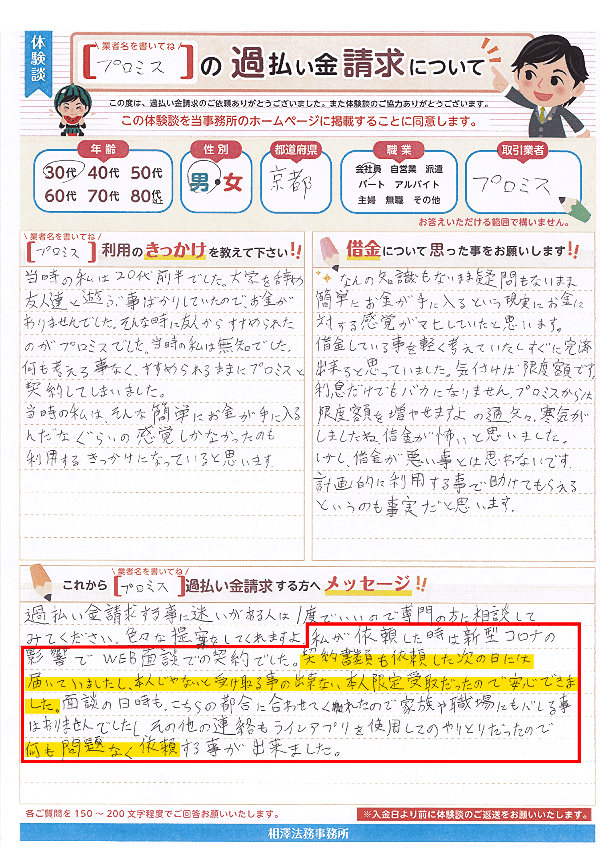 体験談
業者名を書いてね
[プロミス]の過払い金請求について
この度は、過払い金請求のご依頼ありがとうございました。また体験談のご協力ありがとうございます。
この体験談を当事務所のホームページに掲載することに同意します。
年齢
30代 40代 50代
60代 70代 80代以上
性別
男・女
都道府県
京都
職業
会社員 自営業 派遣
パート アルバイト
主婦 無職 その他
取引業者
プロミス
お答えいただける範囲で構いません。
業者名を書いてね
[プロミス]利用のきっかけを教えて下さい!!
当時の私は20代前半でした。大学を辞め
友人達と遊ぶ事ばかりしていたので、お金が
ありませんでした。そんな時に友からすすめられた
のがプロミスでした。当時の私は無知でした。
何も考える事なく、すすめられるままにプロミスと
契約してしまいました。
当時の私は、そんな簡単にお金が手に入る
んだなぐらいの感覚しかなかったのも
利用するきっかけになっていると思います
借金について思った事をお願いします!!
なんの知識もないまま疑問もないまま
簡単にお金が手に入るという現実にお金に
対する感覚がマヒしていたと思います。
借金している事を軽く考えていたしすぐに完済
出来ると思っていました。気付けば限度額です。
利息だけでもバカになりません。プロミスからは
限度額を増やせますよの通知、寒気が
しましたね。借金が怖いと思いました。
しかし、借金が悪い事とは思わないです。
計画的に利用する事で助けてもらえる
というのも事実だと思います。
業者名を書いてね
これから[プロミス]過払い金請求する方へメッセージ!!
過払い金請求する事に迷いがある人は1度でいいので専門の方に相談して
みてください。色々な提案をしてくれますよ。私が依頼した時は新型コロナの
影響でWEB面談での契約でした。契約書類も依頼した次の日には
届いていましたし、本人じゃないと受け取る事の出来ない本人限定受取だったので安心できま
した。面談の日時も、こちらの都合に合わせてくれたので家族や職場にもバレる事
はありませんでしたし、その他の連絡もラインアプリを使用してのやりとりだったので
何も問題なく依頼する事が出来ました。
各ご質問を150〜200文字程度でご回答お願いいたします。
※入金日より前に体験談のご返送をお願いいたします。
相澤法務事務所